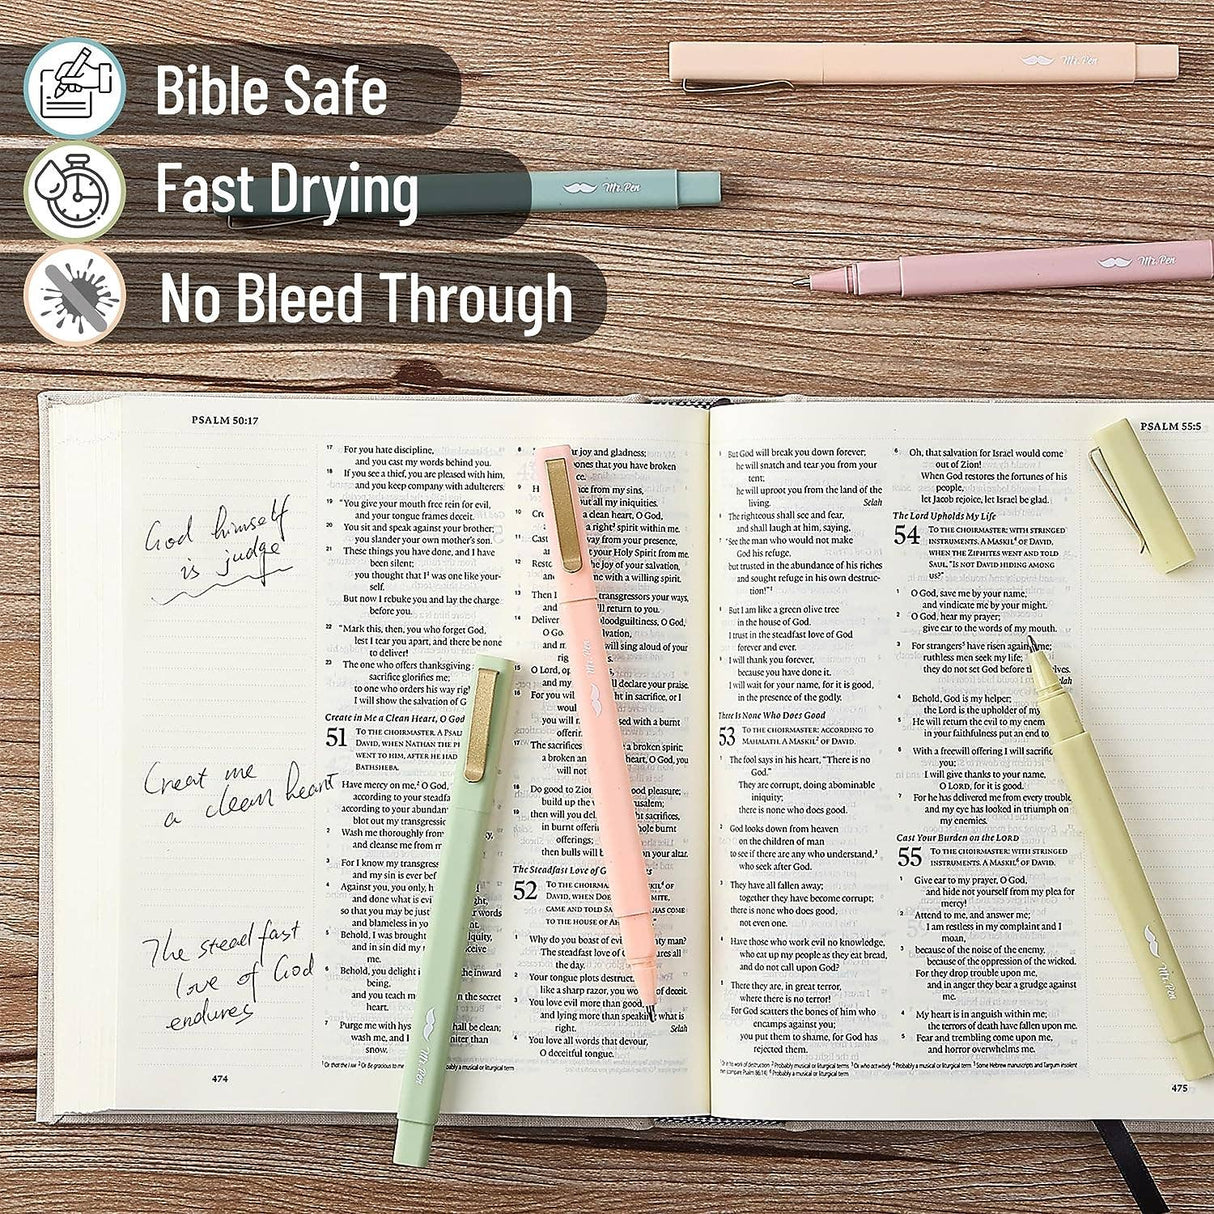 Bible Safe
Fast Drying
No Bleed Through
Mr. Pen
Mr. Pen
Mr. Pen
PSALM 50:17
17 For you hate discipline,
and you cast my words behind you.
18 If you see a thief, you are pleased with him,
and you keep company with adulterers.
19 "You give your mouth free rein for evil,
and your tongue frames deceit.
20 You sit and speak against your brother;
you slander your own mother's son.
21 These things you have done, and I have
been silent;
you thought that I¹ was one like your-
self.
But now I rebuke you and lay the charge
before you.
22 "Mark this, then, you who forget God,
lest I tear you apart, and there be none
to deliver!
23 The one who offers thanksgiving
sacrifice glorifies me;
to one who orders his way
I will show the salvation of
Create in Me a Clean Heart, O God
51 TO THE CHOIRMASTER. A
DAVID, WHEN NATHAN THE
WENT TO HIM, AFTER HE HAD
BATHSHEBA.
Have mercy on me,² O God,
according to your
according to your
blot out my
2 Wash me thoroughly from
and cleanse me from
3 For I know my
and my sin is ever
4 Against you, you only,
and done what is evil sight,
so that you may be words
and blameless in
5 Behold, I was brought
and in sin did my
me.
6 Behold, you delight the inward
being,
and you teach in the secret
heart.
7 Purge me with shall be clean;
wash me, and I than
snow.
God himself
is judge
Creat me
a clean heart
The steadfast
love of God
endures
474
8 joy and gladness;
bones that you have broken
9 face from my sins,
out all my iniquities.
10 a clean heart, O God,
a right³ spirit within me.
11 away from your presence,
your Holy Spirit from me.
12 the joy of your salvation,
me with a willing spirit.
13 Then I transgressors your ways,
and will return to you.
14 Deliver bloodguiltiness, O God,
O God salvation,
and my will sing aloud of your
15 O Lord,
and my will declare your praise.
16 For you will in sacrifice, or I
would
you will with a burnt
offering.
17 The sacrifices a broken spirit;
a broken and heart, O God, you
will not
18 Do good to Zion good pleasure;
build up the
19 then will you sacrifices,
in burnt whole burnt
offerings;
then bulls will be on your altar.
The Steadfast Love of
52 TO THE OF
DAVID, WHEN
CAME AND TOLD HAS COME
TO THE HOUSE OF
1 Why do you boast of man?
The steadfast love of all
the day.
2 Your tongue plots
like a sharp razor, you of deceit.
3 You love evil more than good,
and lying more than speaking what is
right. Selah
4 You love all words that devour,
O deceitful tongue.
Mr. Pen
Mr. Pen
5 But God will break you down forever;
he will snatch and tear you from your
tent;
he will uproot you from the land of the
living. Selah
6 The righteous shall see and fear,
and shall laugh at him, saying,
7 "See the man who would not make
God his refuge,
but trusted in the abundance of his riches
and sought refuge in his own destruc-
tion!"
8 But I am like a green olive tree
in the house of God.
I trust in the steadfast love of God
forever and ever.
9 I will thank you forever,
because you have done it.
I will wait for your name, for it is good,
in the presence of the godly.
There Is None Who Does Good
53 TO THE CHOIRMASTER: ACCORDING TO
MAHALATH. A MASKIL OF DAVID.
1 The fool says in his heart, "There is no
God."
They are corrupt, doing abominable
iniquity;
there is none who does good.
2 God looks down from heaven
on the children of man
to see if there are any who understand,
who seek after God.
3 They have all fallen away;
together they have become corrupt;
there is none who does good,
not even one.
4 Have those who work evil no knowledge,
who eat up my people as they eat bread,
and do not call upon God?
5 There they are, in great terror,
where there is no terror!
For God scatters the bones of him who
encamps against you;
you put them to shame, for God has
rejected them.
PSALM 55:5
6 Oh, that salvation for Israel would come
out of Zion!
When God restores the fortunes of his
people,
let Jacob rejoice, let Israel be glad.
The Lord Upholds My Life
54 TO THE CHOIRMASTER: WITH STRINGED
INSTRUMENTS. A MASKIL OF DAVID,
WHEN THE ZIPHITES WENT AND TOLD
SAUL, "IS NOT DAVID HIDING AMONG
US?"
1 O God, save me by your name,
and vindicate me by your might.
2 O God, hear my prayer;
give ear to the words of my mouth.
3 For strangers have risen against me;
ruthless men seek my life;
they do not set God before
4 Behold, God is my helper;
the Lord is the upholder of my
5 He will return the evil to my
in your faithfulness put an end to
6 With a freewill offering I will sacrifice
you;
I will give thanks to your name,
O LORD, for it is good.
7 For he has delivered me from every trouble,
and my eye has looked in triumph on
my enemies.
Cast Your Burden on the LORD
55 TO THE CHOIRMASTER: WITH STRINGED
INSTRUMENTS. A MASKIL OF DAVID.
1 Give ear to my prayer, O God,
and hide not yourself from my plea for
mercy!
2 Attend to me, and answer me;
I am restless in my complaint and I
moan,
3 because of the noise of the enemy,
because of the oppression of the wicked.
For they drop trouble upon me,
and in anger they bear a grudge against
me.
4 My heart is in anguish within me;
the terrors of death have fallen upon me.
5 Fear and trembling come upon me,
and horror overwhelms me.
475
Mr. Pen